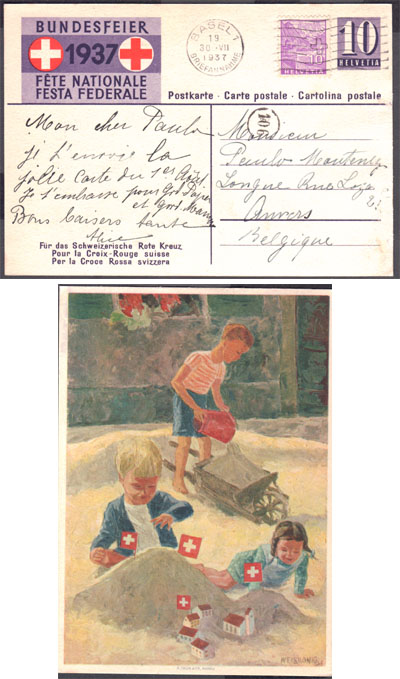 BUNDESFEIER
1937
FÊTE NATIONALE
FESTA FEDERALE
BASEL 1
19
30.VII
1937
BRIEFANNAHME
10
HELVETIA
10
HELVETIA
Postkarte - Carte postale - Cartolina postale
106
Mon cher Paulo
je t'envoie la
jolie carte du 1er Août
je t'embrasse pour
et
Bons baisers tante
Alice
Monsieur
Paulo
Longue Rue
Anvers
Belgique
Für das Schweizerische Rote Kreuz
Pour la Croix-Rouge suisse
Per la Croce Rossa svizzera